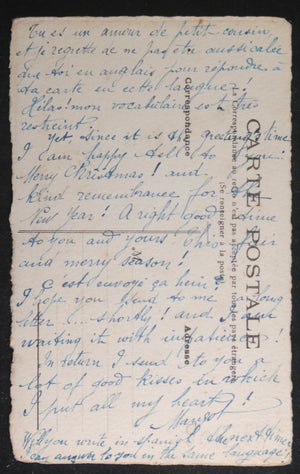 Tu es un amour de petit cousin
et je regrette de ne pas être aussi calée
que toi en anglais pour répondre à
ta carte en cette langue.
Hélas! mon vocabulaire est très
restreint.
Yet, since it is greeting time
I am happy tell to you
Merry Christmas! and
kind remembrance for
New Year! A right good time
to you and yours this fair
and merry season!
C'est envoyé ça hein!
I hope you send to me long
letter.... shortly! and I am
waiting it with impatience!
In return I send to you a
lot of good kisses in which
I put all my heart!
Margot
Will you write in spanish,
can answer to you in the same language!
CARTE POSTALE
La Correspondance au recto n'est pas acceptée par tous les pays étrangers
(Se renseigner à la poste)
Correspondance
Adresse
M